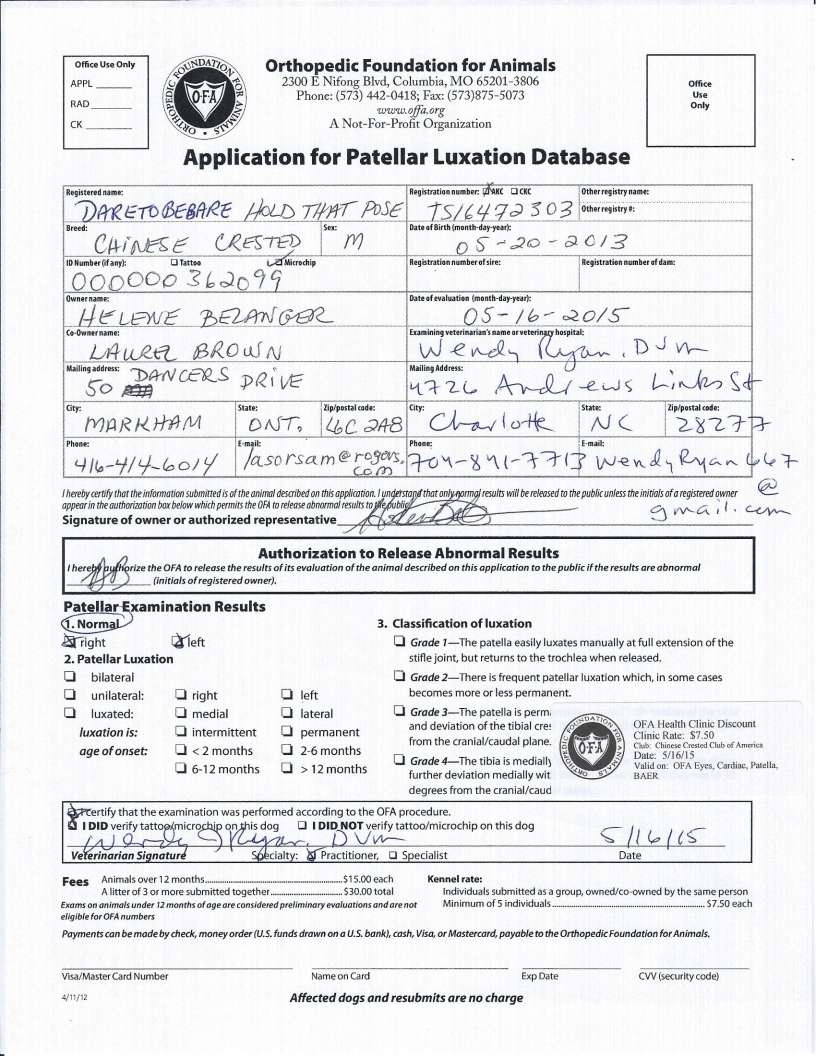 Office Use Only
APPL
RAD
CK
ORTHOPEDIC FOUNDATION FOR ANIMALS
OFA
Orthopedic Foundation for Animals
2300 E Nifong Blvd, Columbia, MO 65201-3806
Phone: (573) 442-0418; Fax: (573)875-5073
www.offa.org
A Not-For-Profit Organization
Office
Use
Only
Application for Patellar Luxation Database
Registered name: Registration number: AKC CKC Other registry name:
DARETOBEBARE HOLD THAT POSE TS16472303 Other registry #:
Breed: Sex: Date of Birth (month-day-year):
CHINESE CRESTED M 05-20-2013
ID Number (if any): Tattoo Microchip Registration number of sire: Registration number of dam:
000000362099
Owner name: Date of evaluation (month-day-year):
HELENE BELANGER 05-16-2015
Co-Owner name: Examining veterinarian's name or veterinary hospital:
LAUREL BROWN Wendy Ryan, DVM
Mailing address: Mailing Address:
50 DANCERS DRIVE 4726 Andrews Links St
City: State: Zip/postal code: City: State: Zip/postal code:
MARKHAM ONT. L6C 2A8 Charlotte NC 28277
Phone: E-mail: Phone: E-mail:
416-414-6014 lasorsam@rogers.com 704-841-7713 WendyRyan667@gmail.com
I hereby certify that the information submitted is of the animal described on this application. I understand that only normal results will be released to the public unless the initials of a registered owner
appear in the authorization box below which permits the OFA to release abnormal results to the public.
Signature of owner or authorized representative
Authorization to Release Abnormal Results
I hereby authorize the OFA to release the results of its evaluation of the animal described on this application to the public if the results are abnormal
(initials of registered owner).
Patellar Examination Results
1. Normal
right left
2. Patellar Luxation
bilateral
unilateral: right left
luxated: medial lateral
luxation is: intermittent permanent
age of onset: < 2 months 2-6 months
6-12 months > 12 months
3. Classification of luxation
Grade 1—The patella easily luxates manually at full extension of the
stifle joint, but returns to the trochlea when released.
Grade 2—There is frequent patellar luxation which, in some cases
becomes more or less permanent.
Grade 3—The patella is perm
and deviation of the tibial cres
from the cranial/caudal plane.
Grade 4—The tibia is medially
further deviation medially wit
degrees from the cranial/caud
ORTHOPEDIC FOUNDATION FOR ANIMALS
OFA
OFA Health Clinic Discount
Clinic Rate: $7.50
Club: Chinese Crested Club of America
Date: 5/16/15
Valid on: OFA Eyes, Cardiac, Patella,
BAER
I certify that the examination was performed according to the OFA procedure.
I DID verify tattoo/microchip on this dog I DID NOT verify tattoo/microchip on this dog
Wendy Ryan, DVM 5/16/15
Veterinarian Signature Specialty: Practitioner, Specialist Date
Fees Animals over 12 months $15.00 each
A litter of 3 or more submitted together $30.00 total
Exams on animals under 12 months of age are considered preliminary evaluations and are not
eligible for OFA numbers
Kennel rate:
Individuals submitted as a group, owned/co-owned by the same person
Minimum of 5 individuals $7.50 each
Payments can be made by check, money order (U.S. funds drawn on a U.S. bank), cash, Visa, or Mastercard, payable to the Orthopedic Foundation for Animals.
Visa/Master Card Number Name on Card Exp Date CVV (security code)
4/11/12 Affected dogs and resubmits are no charge